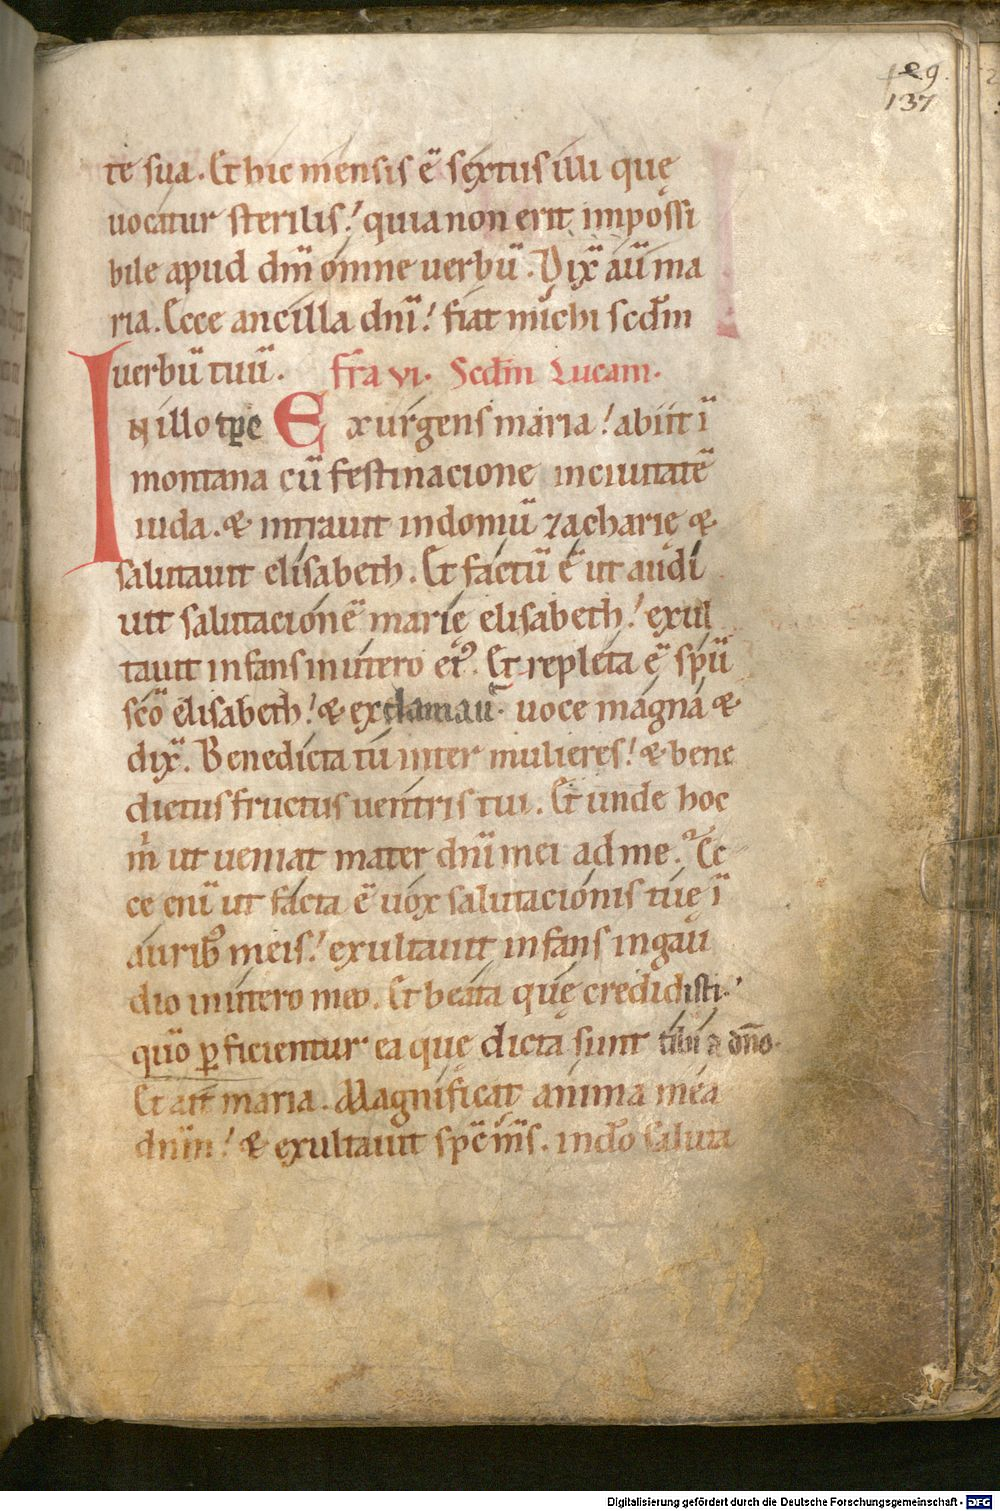 1e9.
137
te sua. Et hic mensis ē sextus illi quę
uocatur sterilis! quia non erit impossi
bile apud dm̄ omne uerbū. Dix̄ aū ma
ria. Ecce ancilla dn̄i! fiat michi scdm̄
uerbū tuū. fr̄a vi. Scdm̄ Lucam.
IN illo tp̄e Exurgens maria! abiit ī
montana cū festinacione in ciuitatē
iuda. & intrauit in domū zacharię &
salutauit elisabeth. Et factū ē ut audi
uit salutacionē marię elisabeth! exul
tauit infans in utero ei᷒. Et repleta ē sp̄ū
sc̄o elisabeth! & exclamau᷒ uoce magna &
dix̄. Benedicta tu inter mulieres! & bene
dictus fructus uentris tui. Et unde hoc
m̊ ut ueniat mater dn̄i mei ad me? Ec
ce eni̅ ut facta ē uox salutacionis tuę ī
auribꝫ meis! exultauit infans in gau
dio in utero meo. Et beata quę credidisti.
qūo ꝑficientur ea quę dicta sunt tibi a dn̄o.
Et ait maria. Magnificat anima mea
dn̄m! & exultauit sp̄c m̄s. in dō saluta
Digitalisierung gefördert durch die Deutsche Forschungsgemeinschaft - DFG